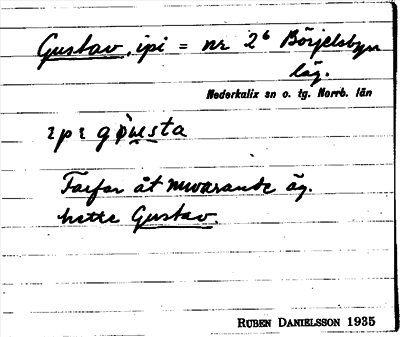 Gustav, ipi = nr 2⁶ Börjelsbyn
läg.
Nederkalix sn o. tg. Norrb. län
ɩpɩ gòusta
Farfar åt nuvarande äg.
hette Gustav.
RUBEN DANIELSSON 1935